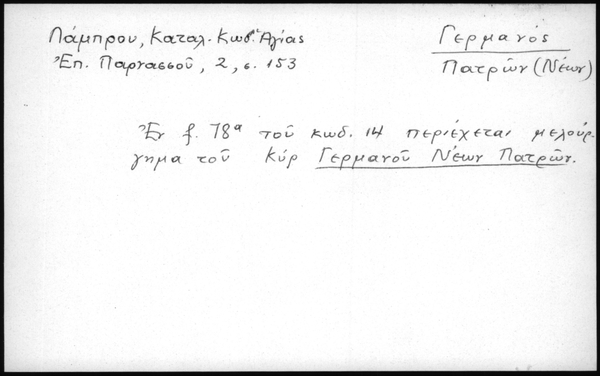 Λάμπρου, Καταλ. Κωδ. Ἁγίας
Ἐπ. Παρνασσοῦ, 2, σ. 153
Γερμανός
Πατρῶν (Νέων)
Ἐν f. 78α τοῦ κωδ. 14 περιέχεται μελούρ-
γημα τοῦ κύρ Γερμανοῦ Νέων Πατρῶν.